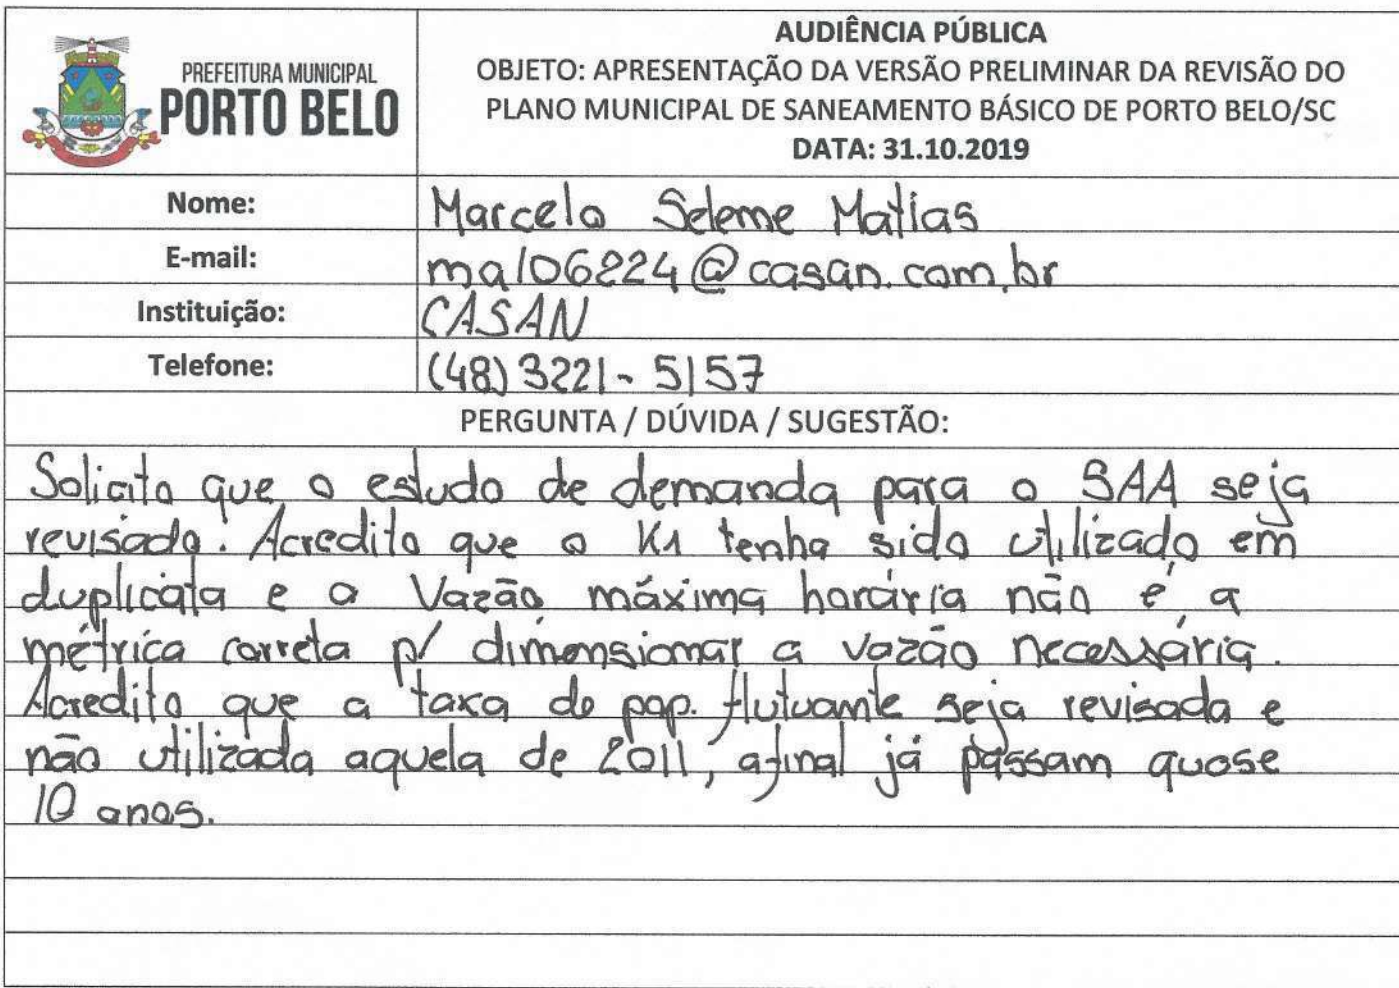 PREFEITURA MUNICIPAL
PORTO BELO
AUDIÊNCIA PÚBLICA
OBJETO: APRESENTAÇÃO DA VERSÃO PRELIMINAR DA REVISÃO DO
PLANO MUNICIPAL DE SANEAMENTO BÁSICO DE PORTO BELO/SC
DATA: 31.10.2019
Nome: Marcelo Seleme Matias
E-mail: ma106224@casan.com.br
Instituição: CASAN
Telefone: (48) 3221-5157
PERGUNTA / DÚVIDA / SUGESTÃO:
Solicito que o estudo de demanda para o SAA seja
revisado. Acredito que o K1 tenha sido utilizado em
duplicata e a Vazão máxima horária não é a
métrica correta p/ dimensionar a vazão necessária.
Acredito que a taxa de pop. flutuante seja revisada e
não utilizada aquela de 2011, afinal já passam quase
10 anos.